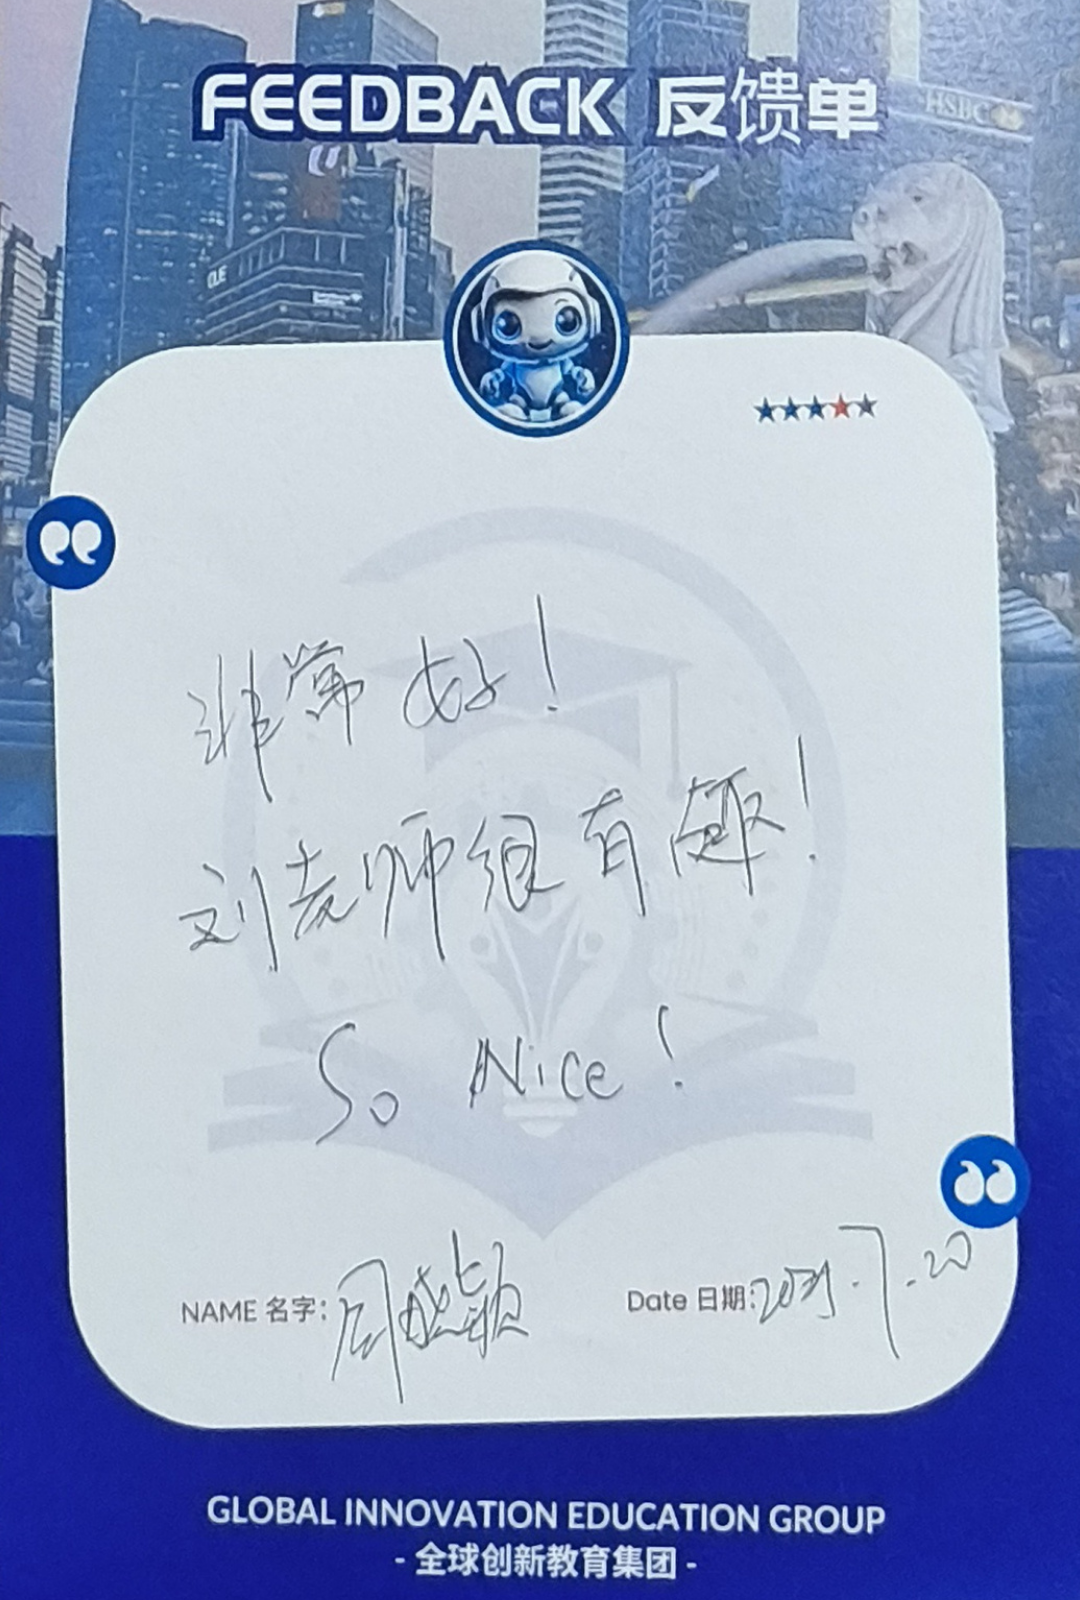 FEEDBACK 反馈单
HSBC
非常好!
刘老师很有趣!
So Nice!
NAME 名字: 周盛颖
Date 日期: .7.20
GLOBAL INNOVATION EDUCATION GROUP
- 全球创新教育集团 -